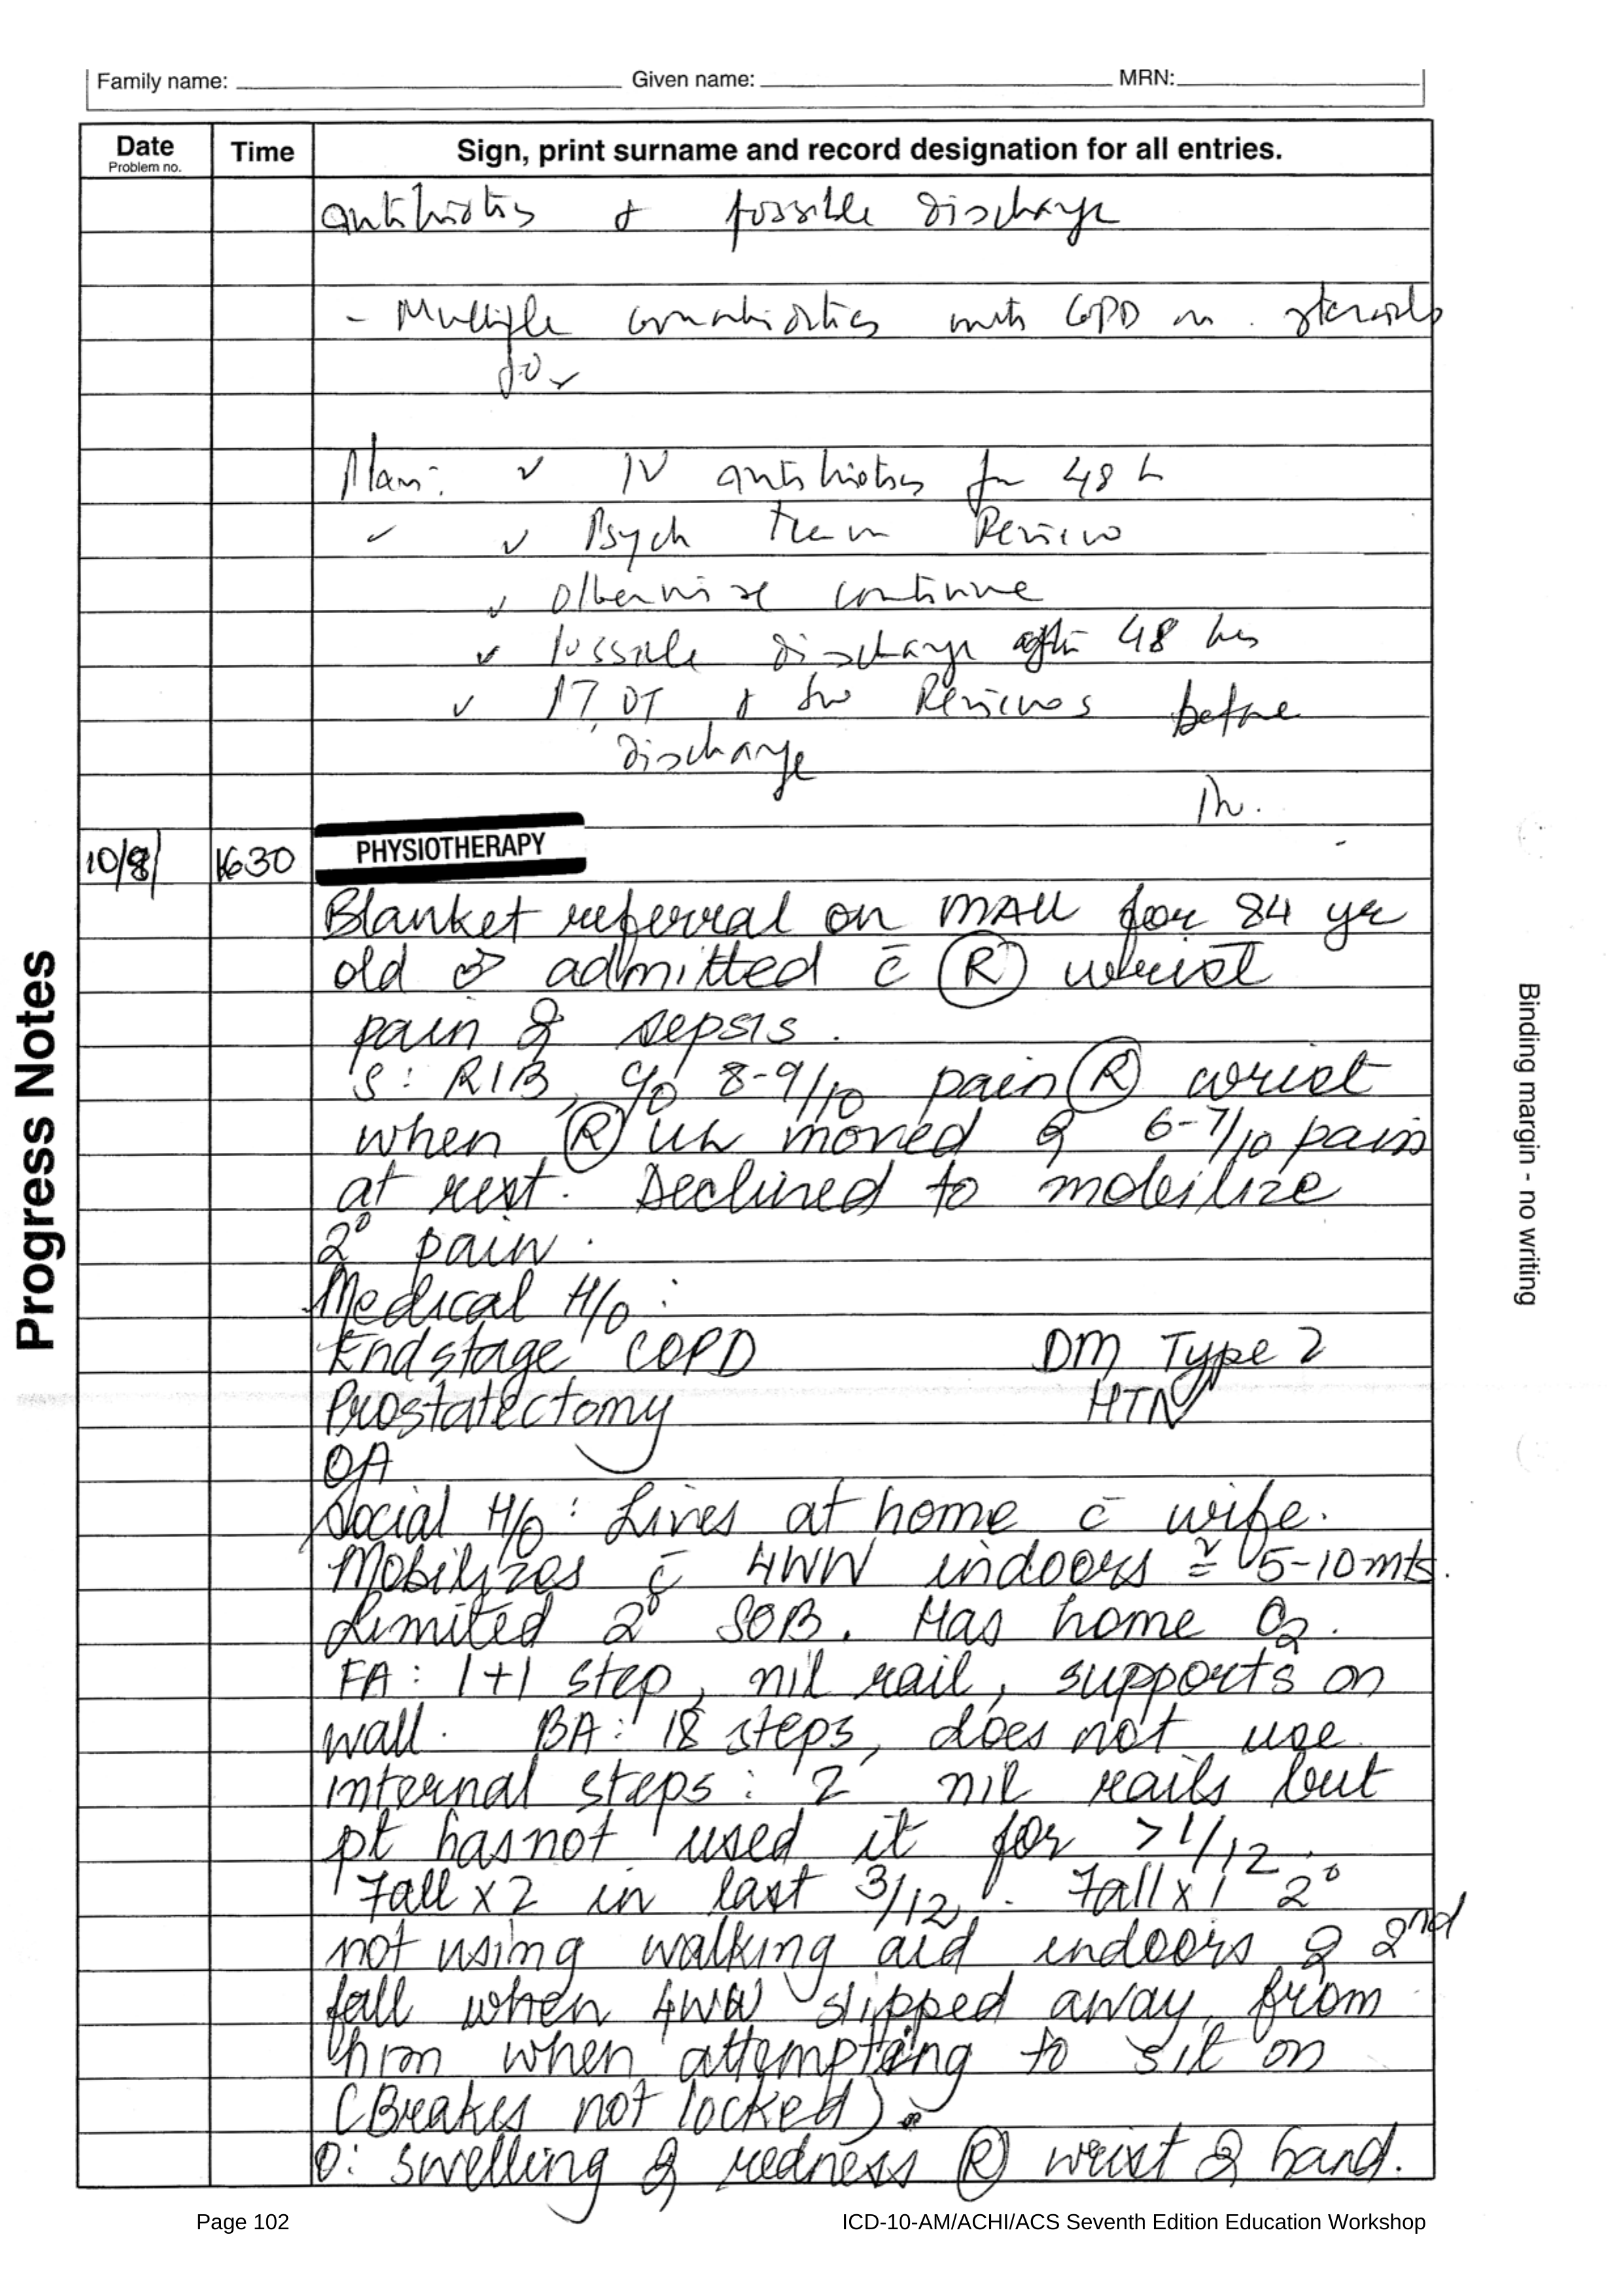 Family name: Given name: MRN:
Date Time Sign, print surname and record designation for all entries.
Problem no.
antibiotics & possible discharge
- Multiple comorbidities with COPD on steroids
Plan: ✓ IV antibiotics for 48 h
✓ ✓ Psych team Review
✓ otherwise continue
✓ possible discharge after 48 hrs
✓ PT, OT & SW Reviews before
discharge
10/8/ 1630 PHYSIOTHERAPY
Blanket referral on MAU for 84 yr
old ♂ admitted c̄ Ⓡ wrist
pain & sepsis.
S: RIB, c/o 8-9/10 pain Ⓡ wrist
when Ⓡ UL moved & 6-7/10 pain
at rest. Declined to mobilize
2° pain.
Medical H/o:
Endstage COPD DM Type 2
Prostatectomy HTN
OA
Social H/o: Lives at home c̄ wife.
Mobilizes c̄ 4WW indoors ≅ 5-10mts.
Limited 2° SOB. Has home O₂.
FA: 1+1 step, nil rail, supports on
wall. BA: 18 steps, does not use
internal steps: 2 nil rails but
pt has not used it for >1/12.
Fall x2 in last 3/12. Fall x1 2°
not using walking aid indoors & 2nd
fall when 4WW slipped away from
him when attempting to sit on
(Breakes not locked).
O: swelling & redness Ⓡ wrist & hand.
Progress Notes
Binding margin - no writing
Page 102 ICD-10-AM/ACHI/ACS Seventh Edition Education Workshop